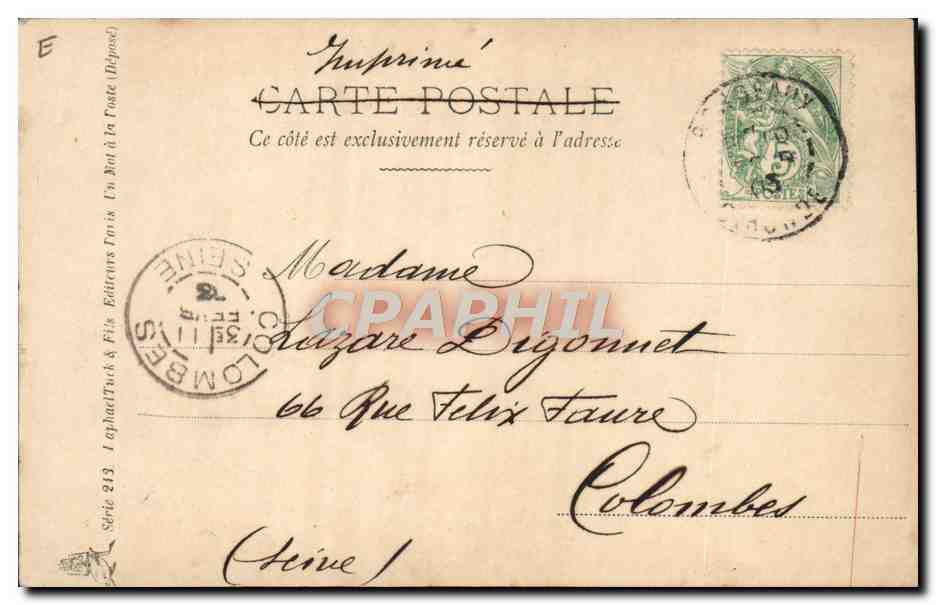 E
Imprimé
CARTE POSTALE
Ce côté est exclusivement réservé à l'adresse
BORDEAUX
5
GIRONDE
Madame
Lazare Digonnet
66 Rue Felix Faure
Colombes
(Seine)
COLOMBES
SEINE
13E
FEVR
CPAPHIL
Série 213 Raphael Tuck & Fils Editeurs Paris Un Mot à la Poste (Déposé)